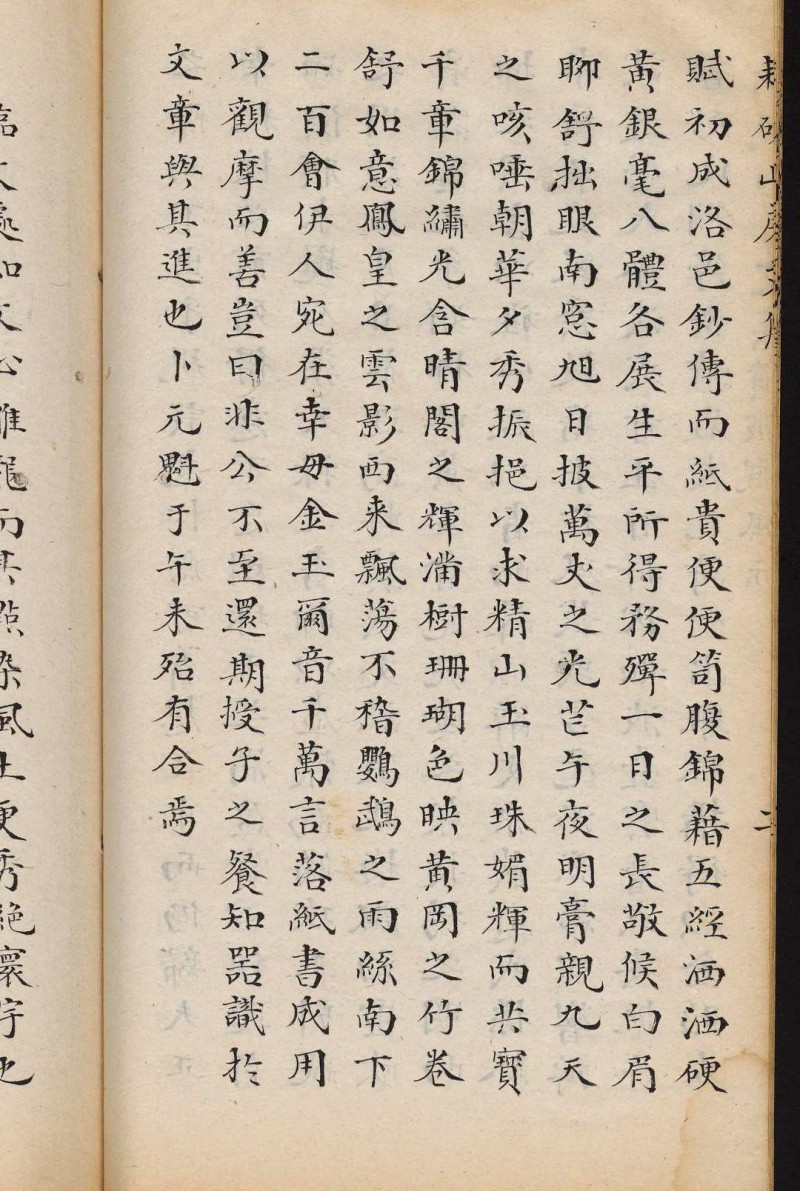 賦初成洛邑鈔傳而紙貴便便笥腹錦藉五經洒洒硬
黃銀毫八體各展生平所得務殫一日之長敬候白眉
聊舒拙眼南窓旭日披萬丈之光芒午夜明膏親九天
之咳唾朝華夕秀振挹以求精山玉川珠媚輝而共寶
千章錦繡光含晴閣之輝滿樹珊瑚色映黃岡之竹卷
舒如意鳳皇之雲影西来飄蕩不稽鸚鵡之雨絲南下
二百會伊人宛在幸毋金玉爾音千萬言落紙書成用
以觀摩而善豈曰非公不至還期授子之餐知器識於
文章與其進也卜元魁于午未殆有合焉
二
臨文處如文心雕龍而其點染風土更秀絶寰宇也